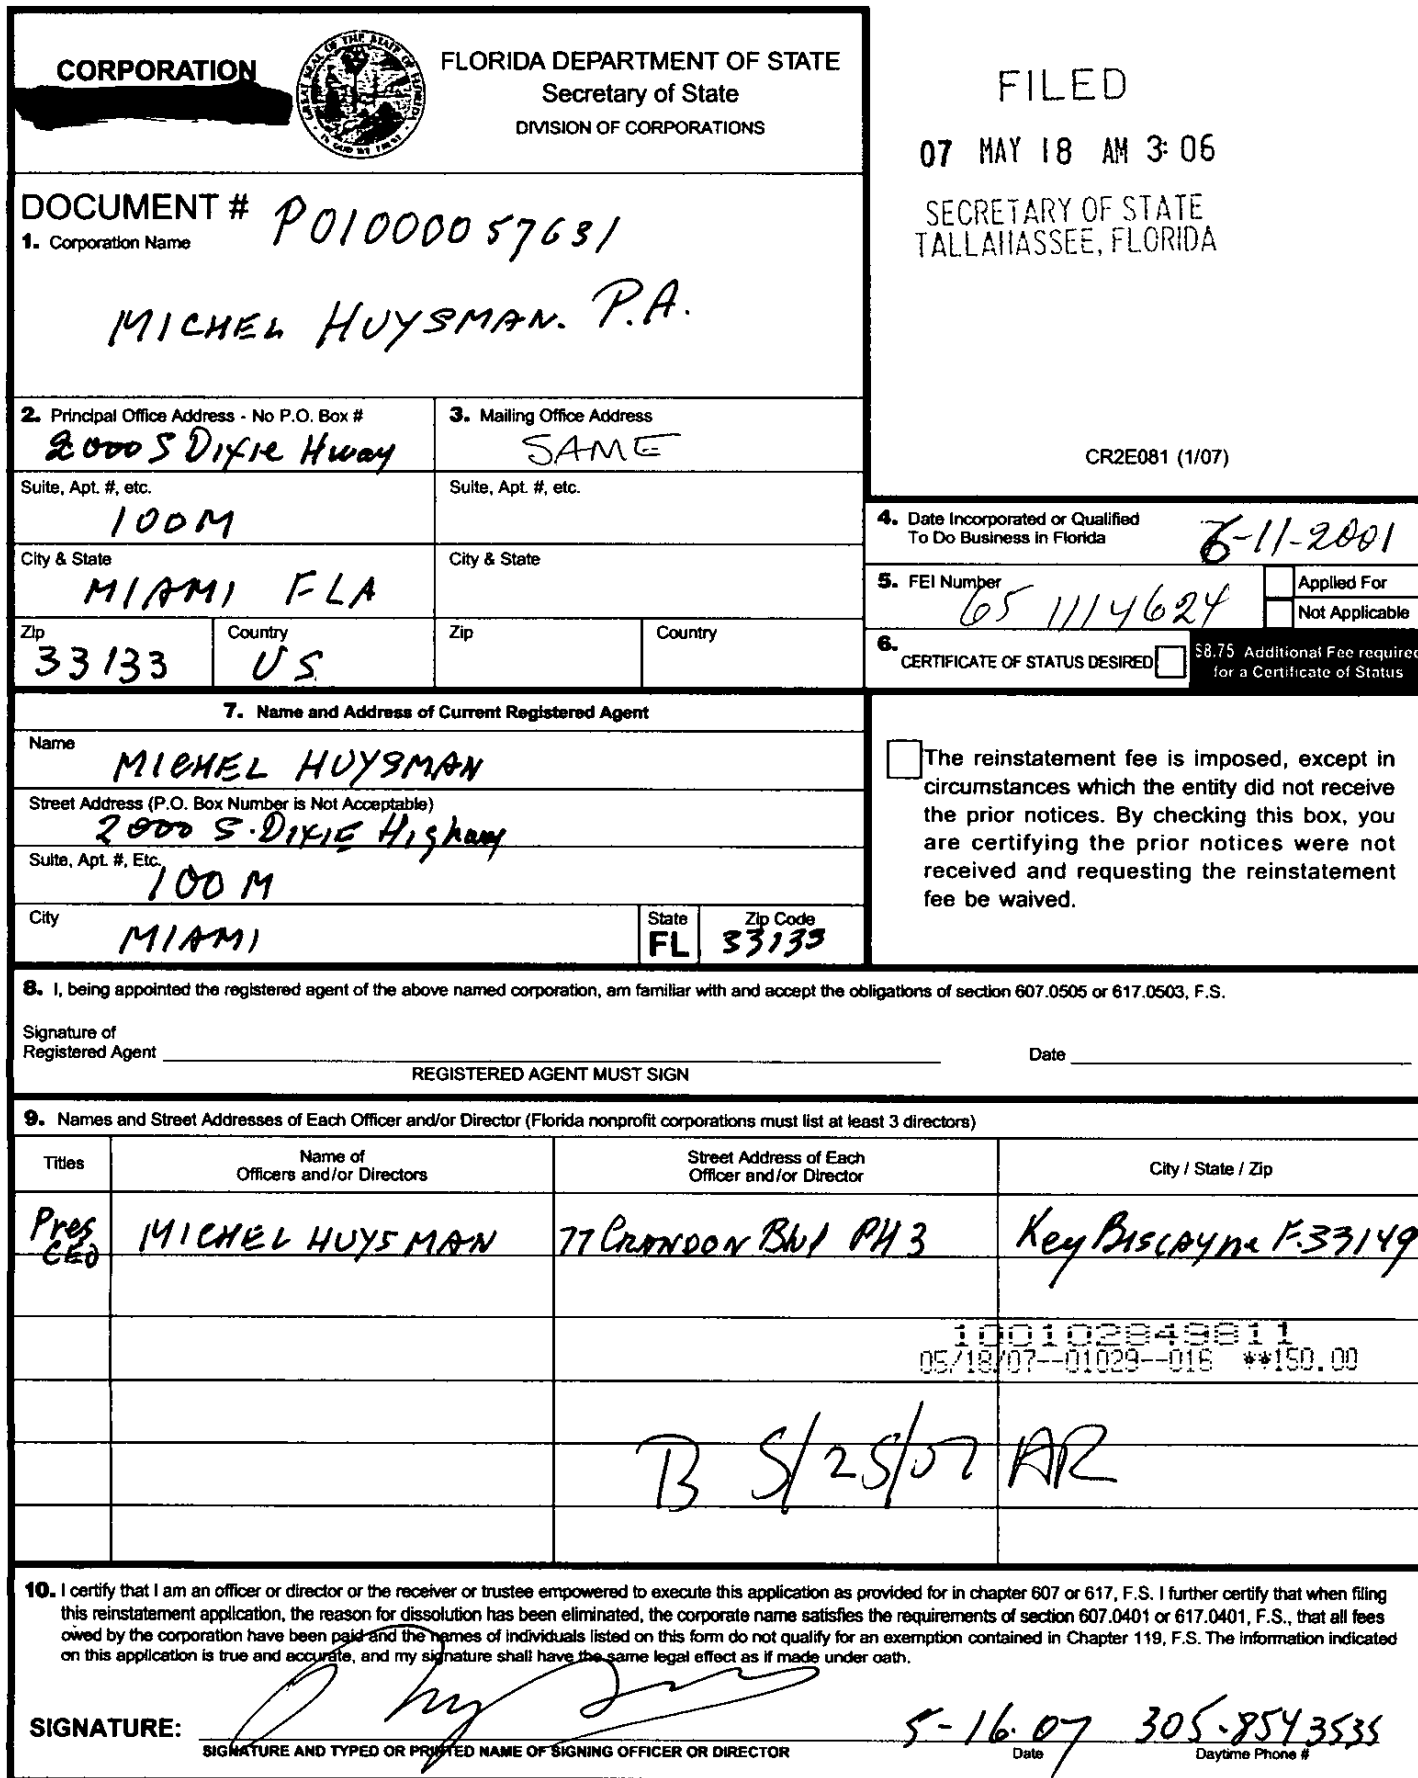 CORPORATION
FLORIDA DEPARTMENT OF STATE
Secretary of State
DIVISION OF CORPORATIONS
FILED
07 MAY 18 AM 3:06
SECRETARY OF STATE
TALLAHASSEE, FLORIDA
DOCUMENT # P01000057631
1. Corporation Name
MICHEL HUYSMAN. P.A.
2. Principal Office Address - No P.O. Box #
2000 S Dixie Hway
3. Mailing Office Address
SAME
CR2E081 (1/07)
Suite, Apt. #, etc.
100M
Suite, Apt. #, etc.
City & State
MIAMI FLA
City & State
Zip
33133
Country
US
Zip
Country
4. Date Incorporated or Qualified
To Do Business in Florida
6-11-2001
5. FEI Number
65 1114624
Applied For
Not Applicable
6. CERTIFICATE OF STATUS DESIRED
$8.75 Additional Fee required
for a Certificate of Status
7. Name and Address of Current Registered Agent
Name
MICHEL HUYSMAN
Street Address (P.O. Box Number is Not Acceptable)
2000 S. DIXIE Highway
Suite, Apt. #, Etc.
100 M
City
MIAMI
State
FL
Zip Code
33133
The reinstatement fee is imposed, except in
circumstances which the entity did not receive
the prior notices. By checking this box, you
are certifying the prior notices were not
received and requesting the reinstatement
fee be waived.
8. I, being appointed the registered agent of the above named corporation, am familiar with and accept the obligations of section 607.0505 or 617.0503, F.S.
Signature of
Registered Agent
Date
REGISTERED AGENT MUST SIGN
9. Names and Street Addresses of Each Officer and/or Director (Florida nonprofit corporations must list at least 3 directors)
Titles
Name of
Officers and/or Directors
Street Address of Each
Officer and/or Director
City / State / Zip
Pres
CEO
MICHEL HUYSMAN
77 CRANDON Blvd PH 3
Key Biscayne F.33149
100102849811
05/18/07--01029--016 **150.00
B 5/25/07 AR
10. I certify that I am an officer or director or the receiver or trustee empowered to execute this application as provided for in chapter 607 or 617, F.S. I further certify that when filing
this reinstatement application, the reason for dissolution has been eliminated, the corporate name satisfies the requirements of section 607.0401 or 617.0401, F.S., that all fees
owed by the corporation have been paid and the names of individuals listed on this form do not qualify for an exemption contained in Chapter 119, F.S. The information indicated
on this application is true and accurate, and my signature shall have the same legal effect as if made under oath.
SIGNATURE:
5-16.07
305.8543535
SIGNATURE AND TYPED OR PRINTED NAME OF SIGNING OFFICER OR DIRECTOR
Date
Daytime Phone #